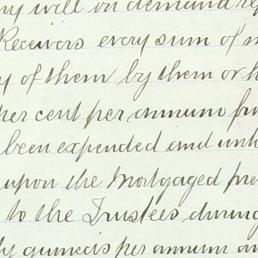 will on demand
Receivers every sum of
of them by them or
per cent per annum
been expended and
upon the Mortgaged
to the Trustees during
guineas per annum